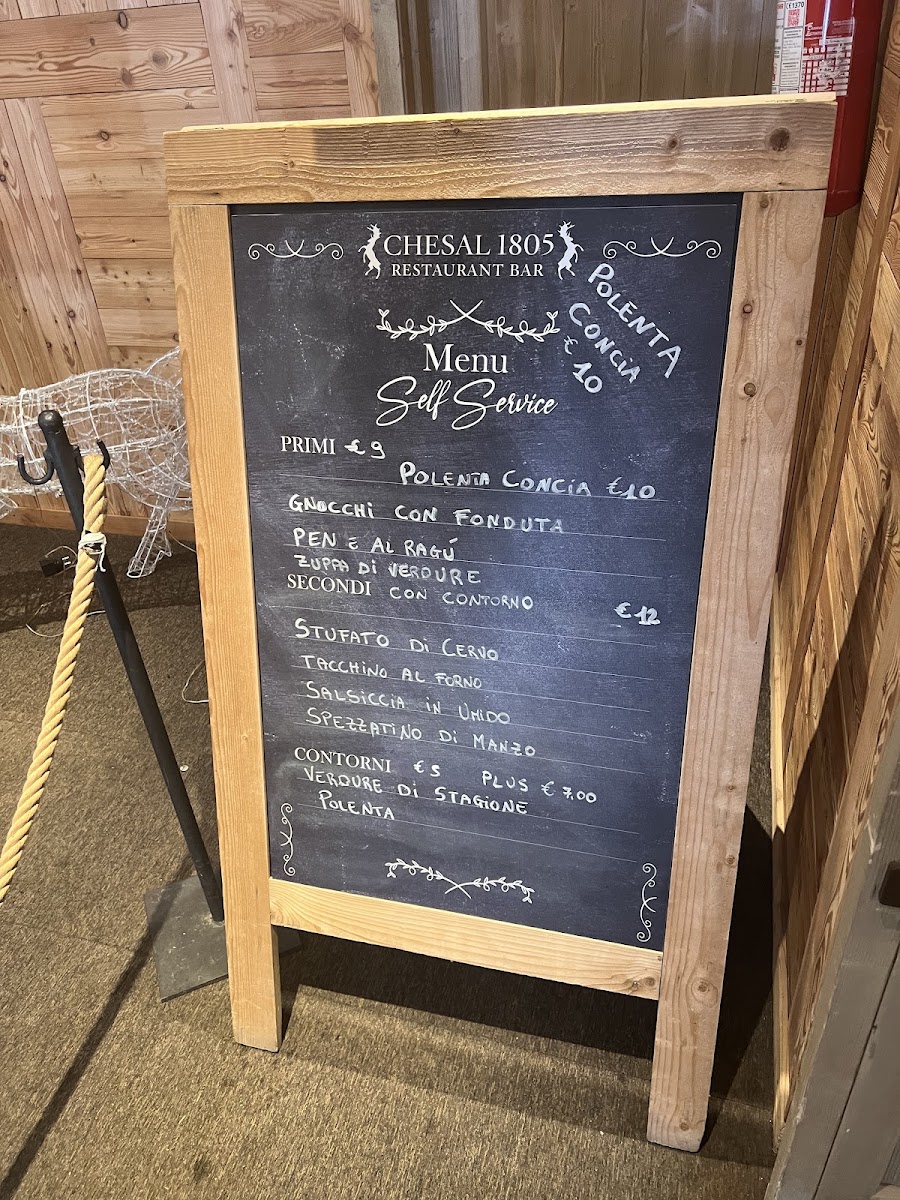 CHESAL 1805
RESTAURANT BAR
POLENTA
CONCIA
€ 10
Menu
Self Service
PRIMI € 9
POLENTA CONCIA €10
GNOCCHI CON FONDUTA
PEN E AL RAGÚ
ZUPPA DI VERDURE
SECONDI CON CONTORNO €12
STUFATO DI CERVO
TACCHINO AL FORNO
SALSICCIA IN UMIDO
SPEZZATINO DI MANZO
CONTORNI €5 PLUS € 7,00
VERDURE DI STAGIONE
POLENTA